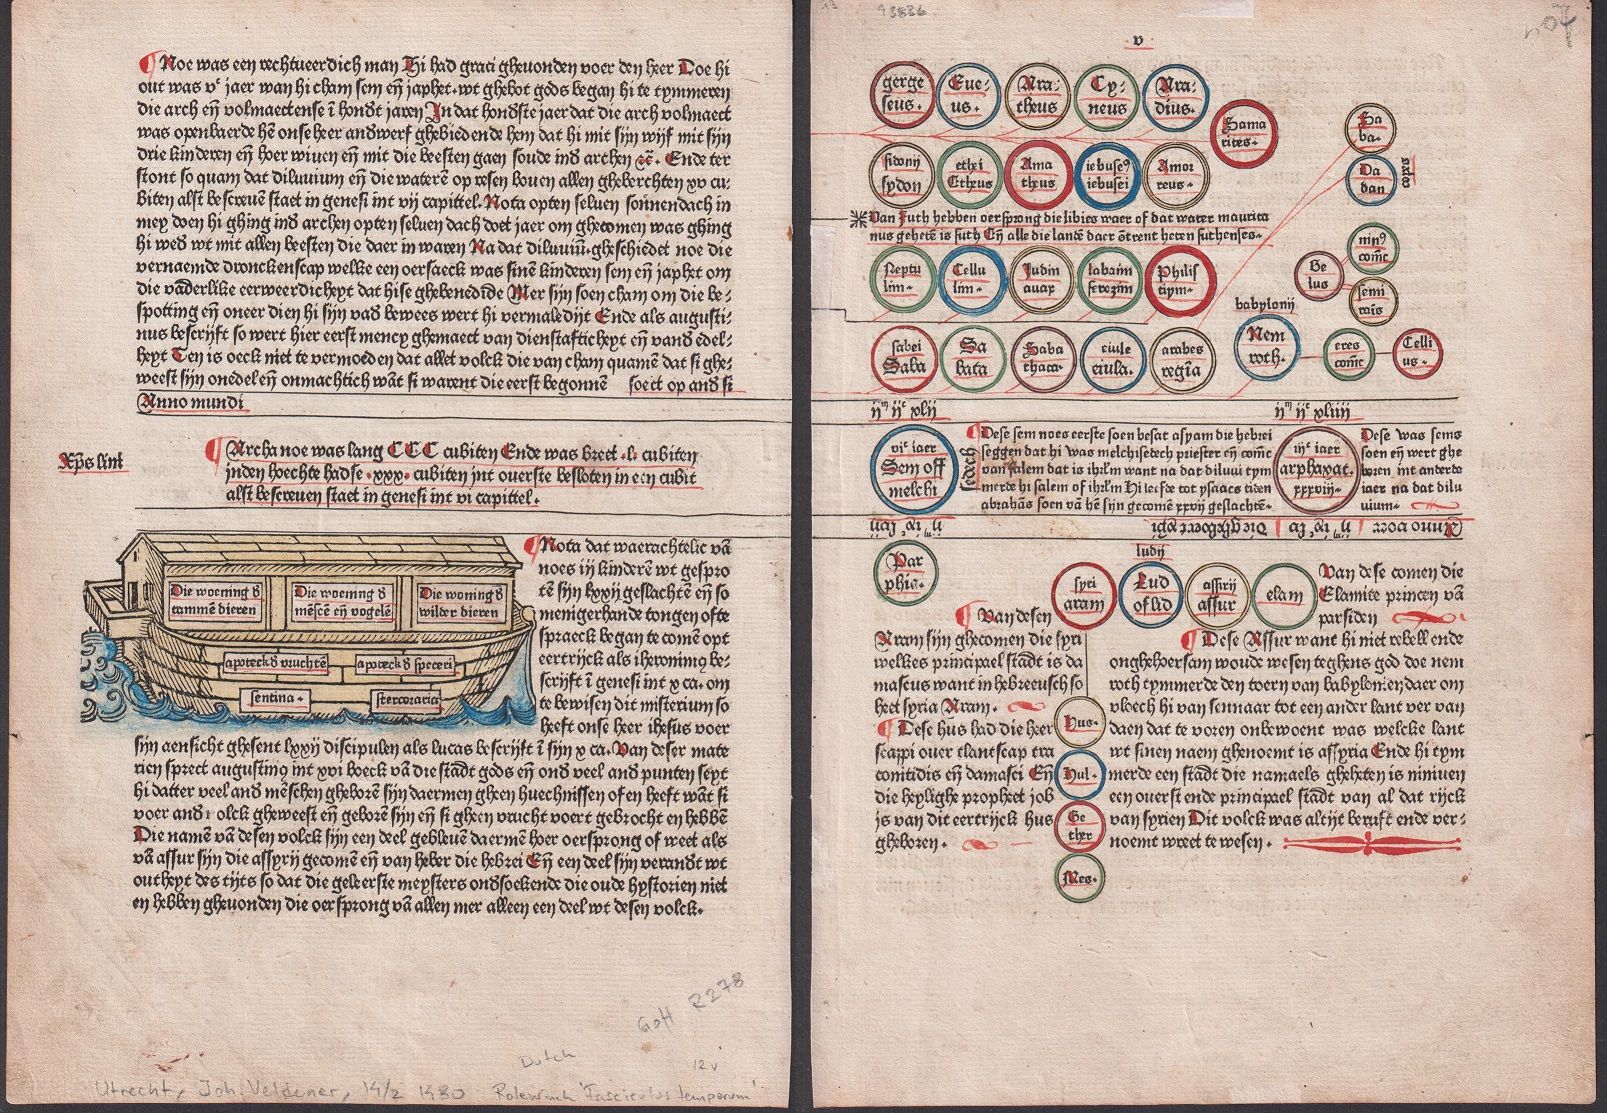 ¶ Noe was een rechtueerdich man Hi had graci gheuonden voer den heer Doe hi
out was vᶜ jaer wan hi cham sem eñ japhet. wt ghebot gods began hi te tymmeren
die arch eñ volmaectense ī hondt jaren In dat hondste jaer dat die arch volmaect
was openbaerde hē onse heer andwerf ghebiedende hem dat hi mit sijn wijf mit sijn
drie kinderen eñ hoer wiuen eñ mit die beesten gaen soude inð archen Ende ter
stont so quam dat diluuium eñ die waterē op resen bouen allen gheberchten xv cu-
biten alst bescreuē staet in genesi int vij capittel. Nota opten seluen sonnendach in
mey doen hi ghing inð archen opten seluen dach doet jaer om ghecomen was ghing
hi weð wt mit allen beesten die daer in waren Na dat diluuiū gheschiedet noe die
vernaemde dronckenscap welke een oersaeck was sinē kinderen sem eñ japhet om
die vāderlike eerweerdicheyt dat hise ghebenedide Mer sijn soen cham om die be-
spotting eñ oneer dien hi sijn vað bewees wert hi vermaledijt Ende als augusti-
nus bescrijft so wert hier eerst mency ghemaect van dienstafticheyt eñ vand edel-
heyt Ten is oeck niet te vermoeden dat allet volck die van cham quamē dat si ghe-
weest sijn onedel eñ onmachtich wāt si warent die eerst begonnē soect op and si
Anno mundi
Xp̄s lini
¶ Archa noe was lang CCC cubiten Ende was breet .l. cubiten
inden hoechte hadse .xxx. cubiten int ouerste besloten in een cubit
alst bescreuen staet in genesi int vi capittel.
Die woening ð
tammē dieren
Die woening ð
mēscē eñ vogelē
Die woning ð
wilder dieren
apoteck ð vruchtē
apoteck ð speceri
sentina.
stercoraria
¶ Nota dat waerachtelic vā
noes iij kinderē wt gespro
tē sijn lxxij geslachtē eñ so
menigerhande tongen ofte
spraeck began te comē opt
eertrijck als iheronimg be-
scrijft ī genesi int x ca. om
te bewisen dit misterium so
heeft onse heer ihesus voer
sijn aensicht ghesent lxxij discipulen als lucas bescrijft ī sijn x ca. Van deser mate
rien sprect augustinꝰ int xvi boeck vā die stadt gods eñ onð veel and punten seyt
hi datter veel and mēschen gheborē sijn daermen gheen huechnissen of en heeft wāt si
voer and volck gheweest eñ geborē sijn eñ si gheen vrucht voert gebrocht en hebbē
Die namē vā desen volck sijn een deel gebleuē daermē hoer oersprong of weet als
vā assur sijn die assyrij gecomē eñ van heber die hebrei Eñ een deel sijn verandt wt
outheyt des tijts so dat die geleerste meysters ondsoekende die oude hystorien niet
en hebben gheuonden die oersprong vā allen mer alleen een deel wt desen volck.
Goff R278
Dutch
12v
Utrecht, Joh. Veldener, 14/2 1480 Rolewinck 'Fasciculus temporum'
13
93836
v
gerge
seus.
Eue-
us.
Ara-
theus
Cy-
neus
Ara-
dius.
Sama
rites.
Sa
ba.
Da
dan
sitonij
sydon
ethei
Etheus
Ama
theus
iebuseꝰ
iebusei
Amor
reus.
Van Futh hebben oersprong die libies waer of dat water maurita
nus gehetē is futh Eñ alle die lantē daer ōtrent heten futhenses.
ninꝰ
comē
Be
lus
semi
rais
Neptu
lim.
Cellu
lim.
Ludin
auax
labaim
ferezim
Philis
tijm.
babylonij
Nem
roth.
eres
comē
Celli
us.
sabei
Saba
Sa
bata
Saba
thaca.
euile
eiula.
arabes
regīa
ijᵐ ijᶜ xlij
ijᵐ ijᶜ xliiij
viᶜ iaer
Sem off
melchi
sedech
¶ Dese sem noes eerste soen besat asyam die hebrei
seggen dat hi was melchisedech priester eñ comē
van salem dat is ihrlm want na dat diluui tym
merde hi salem of ihrlm Hi leefde tot ysaacs tiden
abrahās soen vā hē sijn gecomē xxvij geslachtē.
iijᶜ iaer
arphaxat.
xxxviij.
Dese was sems
soen eñ wert ghe
boren int anderde
iaer na dat dilu
uium.
Anno voer
Die gheboert xp̄i
Par
phia.
syri
aram
ludij
Lud
of lid
assirij
assur
elam
Van dese comen die
Elamite princen vā
parsiden
¶ Van desen
Aram sijn ghecomen die syri
welkes principael stadt is da
mascus want in hebreeusch so
heet syria Aram.
¶ Dese hus had die heer
scappi ouer tlantscap tra
conitidis eñ damasci Eñ
die heylighe propheet job
is van dit eertrijck hus
gheboren.
Hus.
Hul.
Ge
ther
Mes.
¶ Dese Assur want hi niet rebell ende
onghehoersam woude wesen teghens god doe nem
roth tymmerde den toern van babylonien daer om
vloech hi van sennaar tot een ander lant ver van
daen dat te voren onbewoent was welcke lant
wt sinen naem ghenoemt is assyria Ende hi tym
merde een stadt die namaels gheheten is niniuen
een ouerst ende principael stadt van al dat rijck
van syrien Dit volck was altijt beruft ende ver-
noemt wreet te wesen.